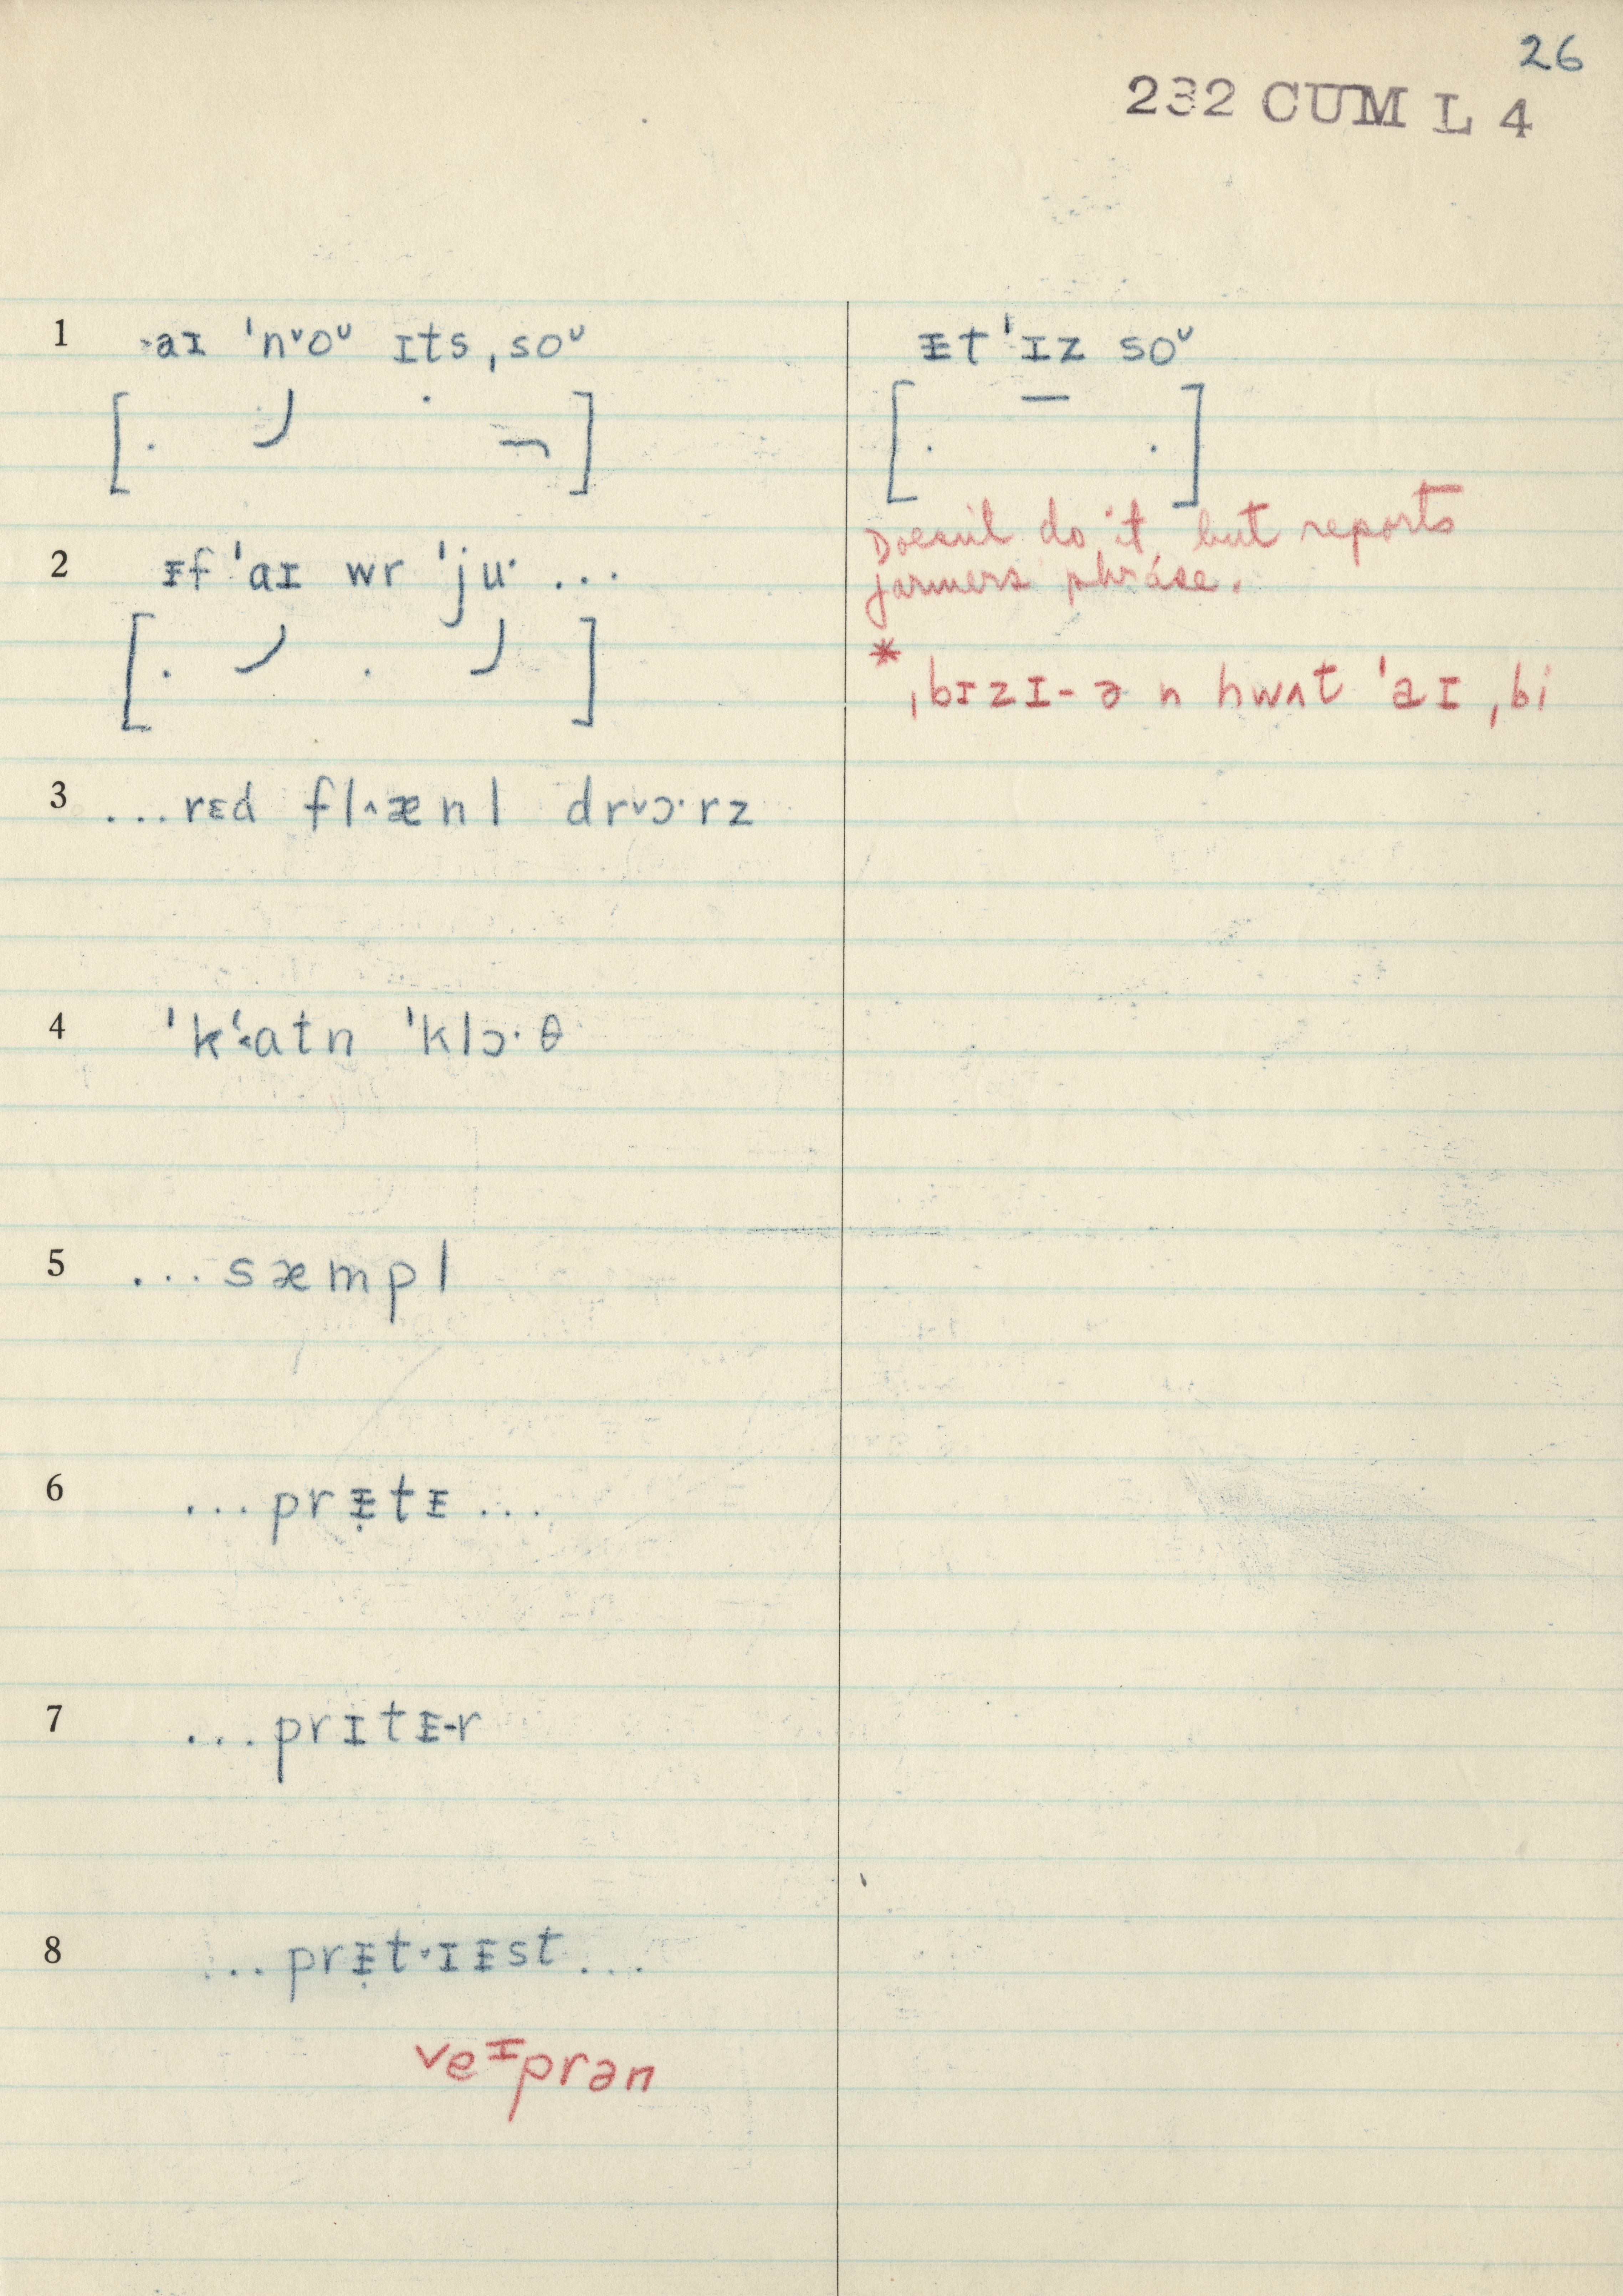 26
232 CUM L 4
1 ˃aɪ ˈn˅oᶷ ɪts ˌsoᶷ
ᵻt ˈɪz soᶷ
Doesn't do it, but reports
farmers phrase.
2 ᵻf ˈaɪ wr ˈju· ...
* ˌbɪzɪ-ə n hwʌt ˈaɪ ˌbi
3 ...rɛd fl˄ænl dr˅ɔ·rz
4 ˈkʻ˂atn ˈklɔ·θ
5 ...sæmpl
6 ...prᵻ̣tᵻ...
7 ...prɪtᵻ-r
8 ...prᵻ̣t˅ɪᵻst...
veᶦprən